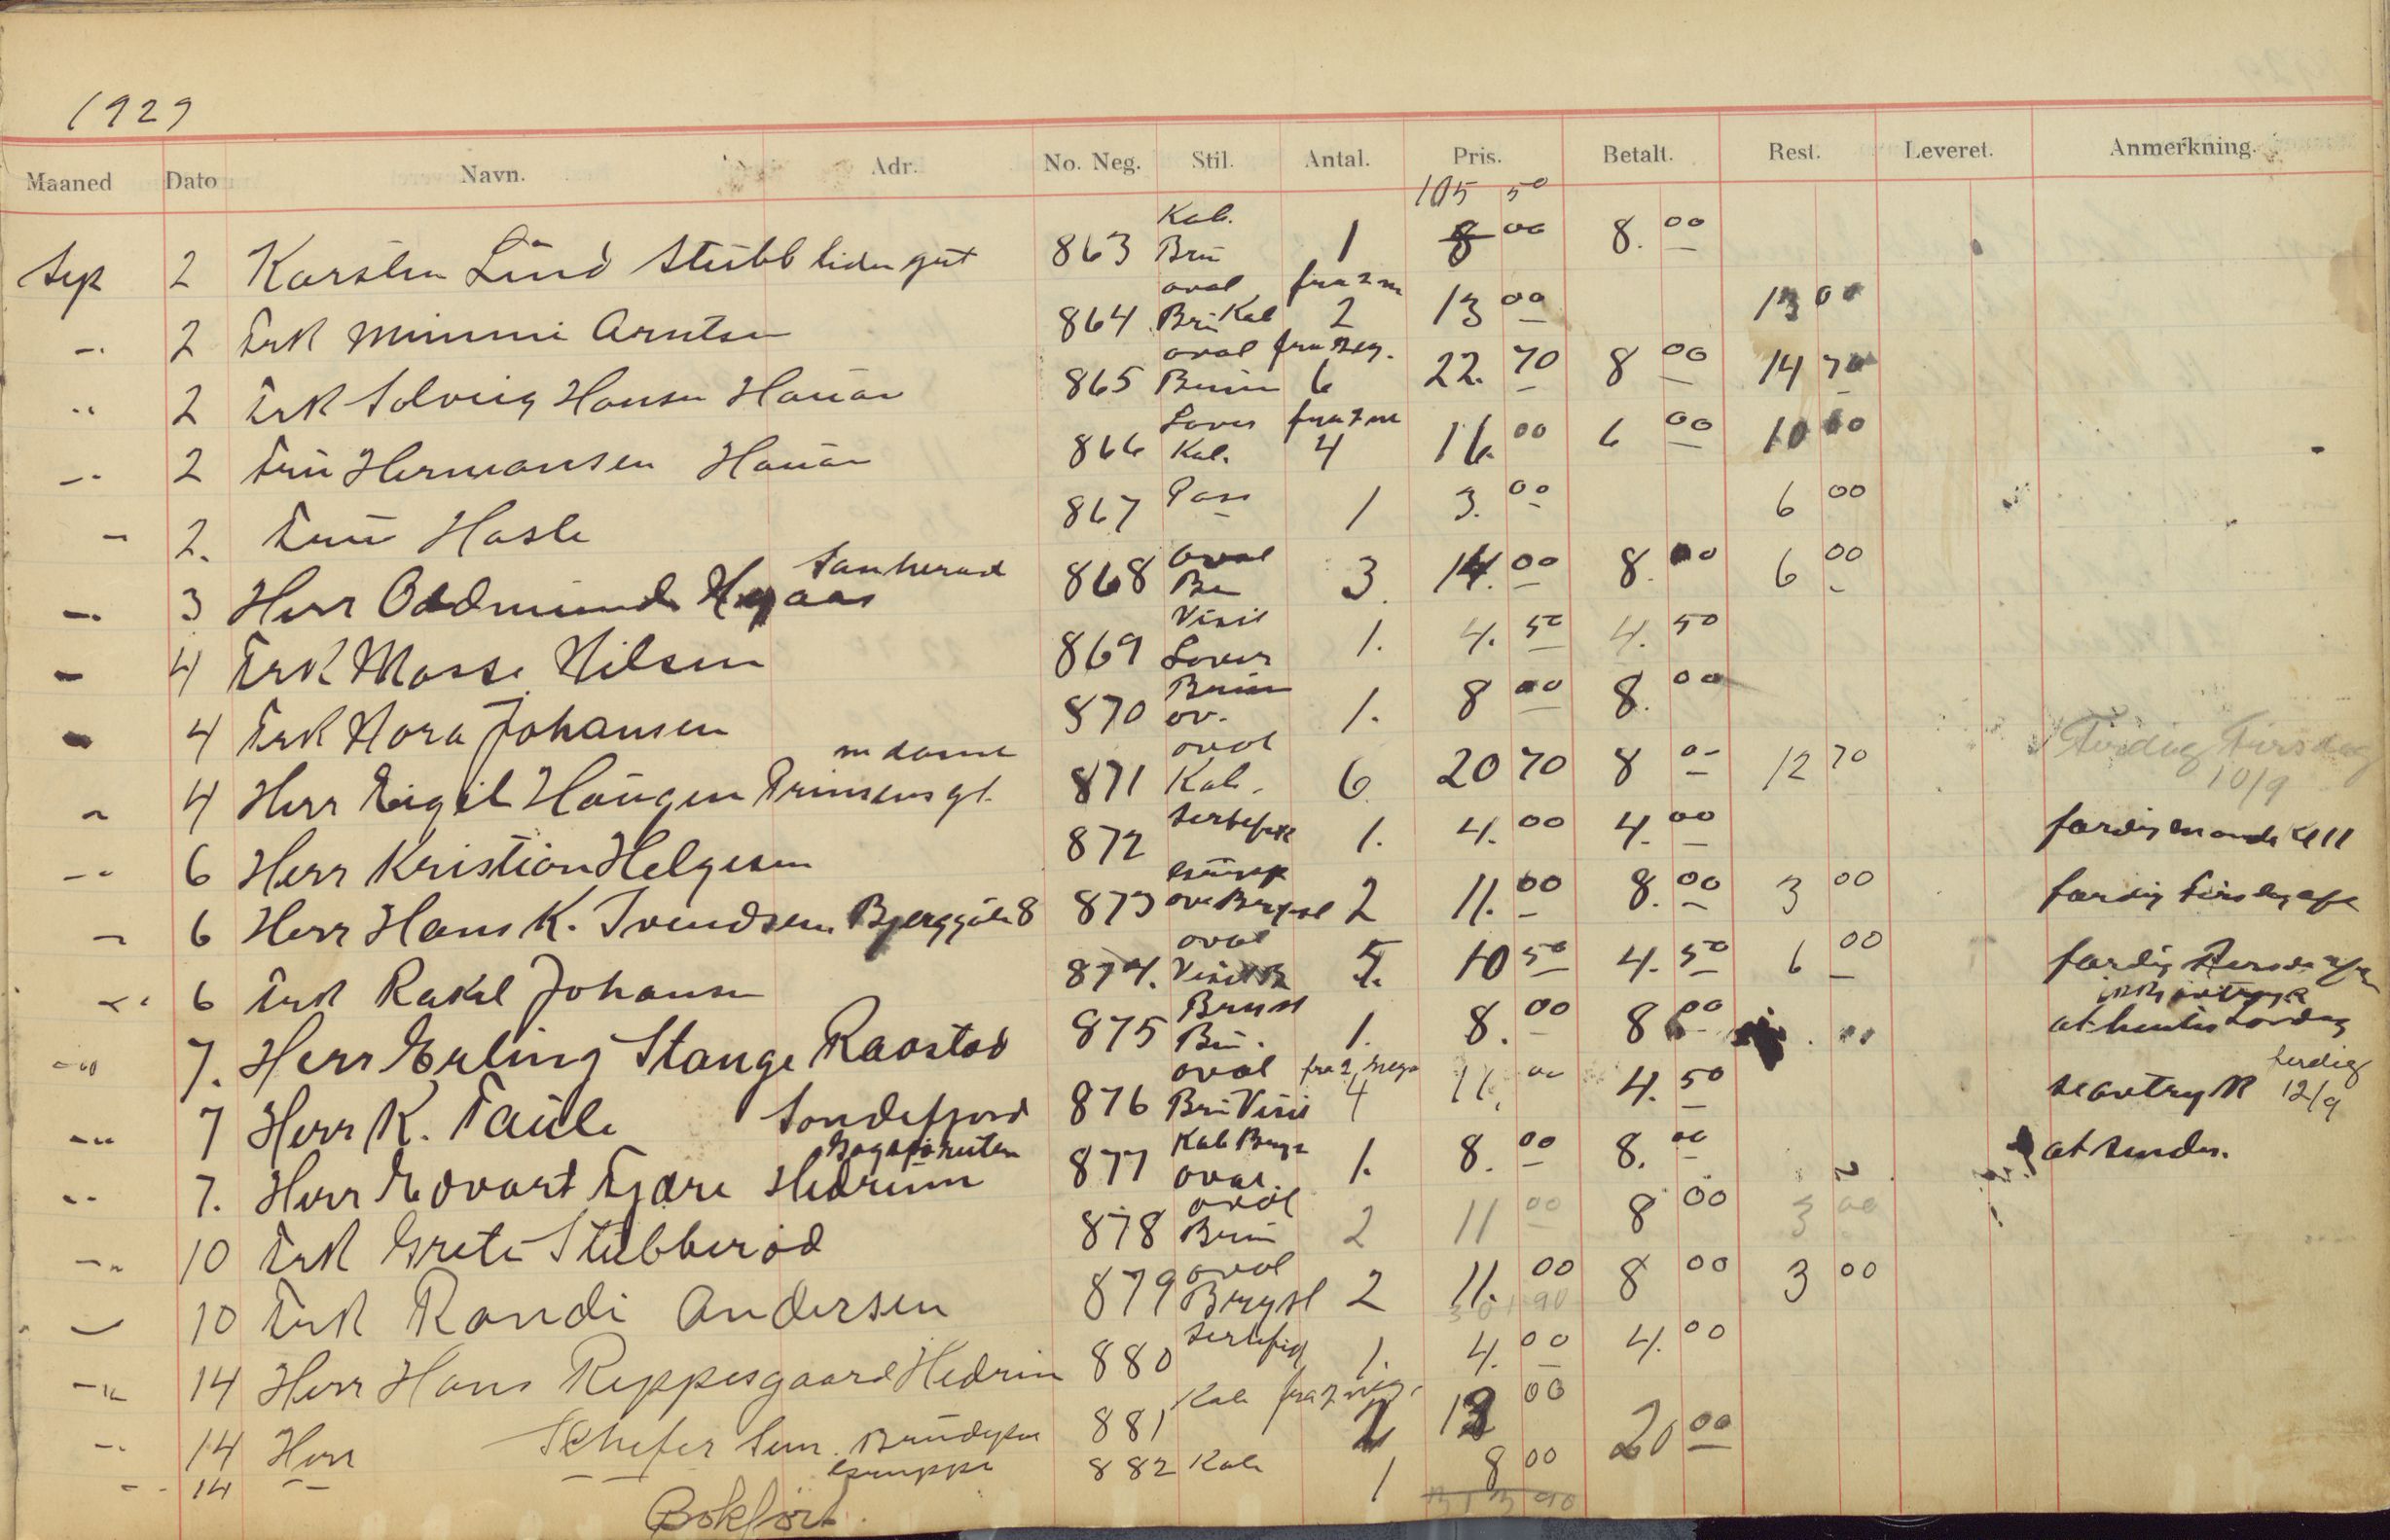 1929
Maaned Dato Navn. Adr. No. Neg. Stil. Antal. Pris. Betalt. Rest. Leveret. Anmerkning.
105 50
Kab.
Sep 2 Karsten Lund Stubb liden gut 863 Brü 1 8 00 8. 00
oval fra 2 ne
2 Frk Mimmi Arntsen 864 Brü Kab 2 13 00 13 00
oval fra neg.
2 Frk Solveig Hansen Hauan 865 Brün 6 22. 70 8 00 14 70
fra 2 ne
2 Frü Hermansen Hauan 866 Kab. 4 16. 00 6 00 10 00
2. Frü Hasle 867 Pass 1 3. 00 6 00
Sanherad oval
3 Herr Oddmund 868 3 14. 00 8. 00 6 00
Visit
4 Frk Masse Nilsen 869 1. 4. 50 4. 50
Brün
4 Frk Nora Johansen 870 ov. 1. 8 00 8. 00
m dame oval Færdig Tirsdag
4 Herr Eigil Haugen Prinsensgt. 871 Kab. 6 20 70 8 00 12 70 10/9
6 Herr Kristian Helgesen 872 1. 4. 00 4. 00 færdig
6 Herr Hans K. Svendsen Bjerggata 8 873 2 11. 00 8. 00 3 00 færdig
oval
6 Frk Rakel Johansen 874. Visit 5. 10 50 4. 50 6 00 færdig
Bryst
7. Herr Erling Stange Raastad 875 Brü. 1. 8. 00 8 00 at hentes Lørdag
oval fra 2 nega ferdig
7 Herr K. Faüle Sandefjord 876 Brü Visit 4 11. 00 4. 50 12/9
Kab Brys
7. Herr Edvart Fjære Hedrum 877 oval. 1. 8. 00 8. 00 at sendes.
oval
10 Frk Grete Stubberød 878 Brün 2 11 00 8 00 3 00
oval
10 Frk Randi Andersen 879 Bryst 2 11. 00 8 00 3 00
301 90
14 Herr Hans Reppesgaard Hedrum 880 1. 4. 00 4. 00
Kab fra 2 neg.
14 Herr Schefer Sen. 881 2 13 00 20 00
14 Gruppe 882 Kab 1 8 00
Bokført. 313 90